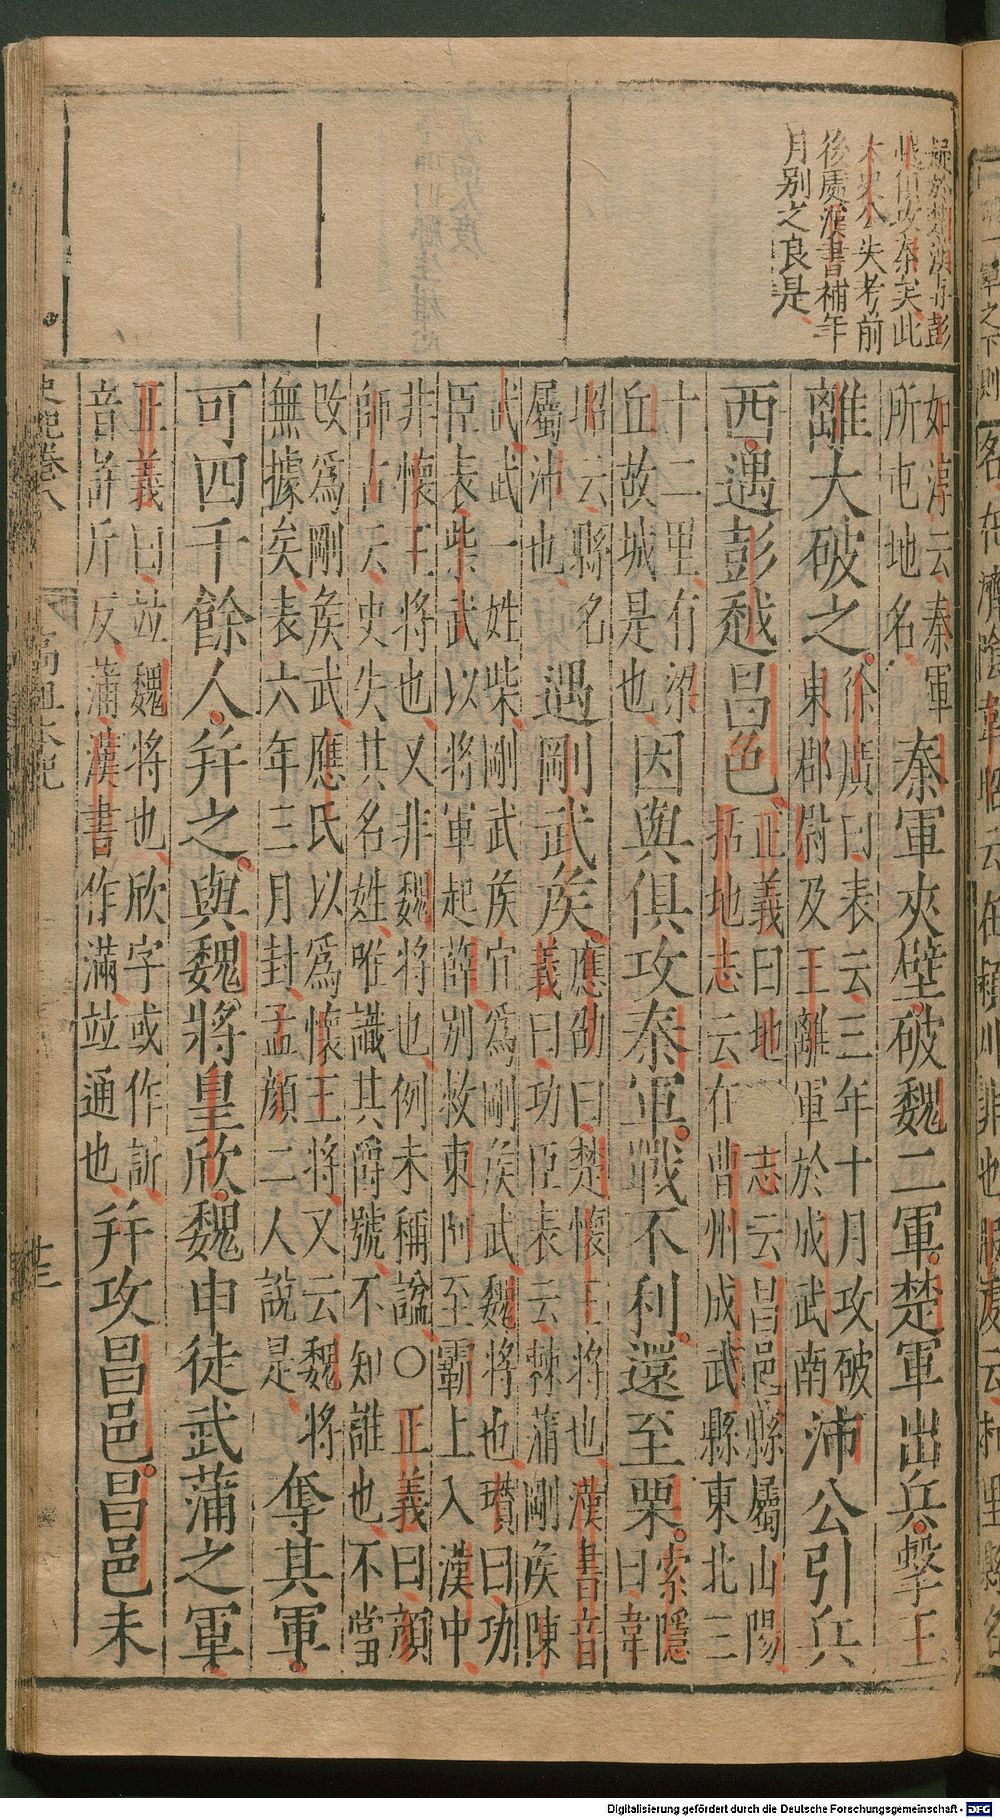 太史公失考前
後處漢書補年
月別之良是
如淳云秦軍
所屯地名
秦軍夾壁破魏二軍楚軍出兵擊王
離大破之
徐廣曰表云三年十月攻破
東郡尉及王離軍於成武南
沛公引兵
西遇彭越昌邑
正義曰地 志云昌邑縣屬山陽
括地志云在曹州成武縣東北三
十二里有梁
丘故城是也
因與俱攻秦軍戰不利還至栗
索隱
曰韋
昭云縣名
屬沛也
遇剛武矦
應劭曰楚懷王將也漢書音
義曰功臣表云棘蒲剛矦陳
武武一姓柴剛武矦宜爲剛矦武魏將也瓚曰功
臣表柴武以將軍起薛別救東阿至霸上入漢中
非懷王將也又非魏將也例未稱諡○正義曰顔
師古云史失其名姓唯識其爵號不知誰也不當
改爲剛矦武應氏以爲懷王將又云魏將
無據矣表六年三月封孟顔二人說是
奪其軍
可四千餘人并之與魏將皇欣魏申徒武蒲之軍
正義曰竝魏將也欣字或作訢
音許斤反蒲漢書作滿竝通也
并攻昌邑昌邑未
史記卷八 高祖本紀
Digitalisierung gefördert durch die Deutsche Forschungsgemeinschaft - DFG